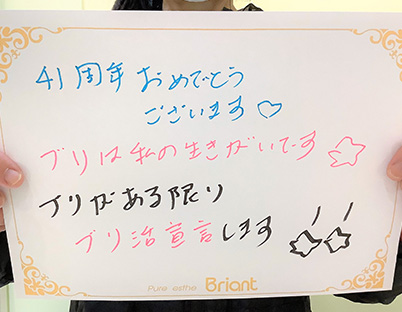 41周年おめでとう
ございます♡
ブリは私の生きがいです☆
ブリがある限り
ブリ活宣言します☆☆
Pure esthe Briant